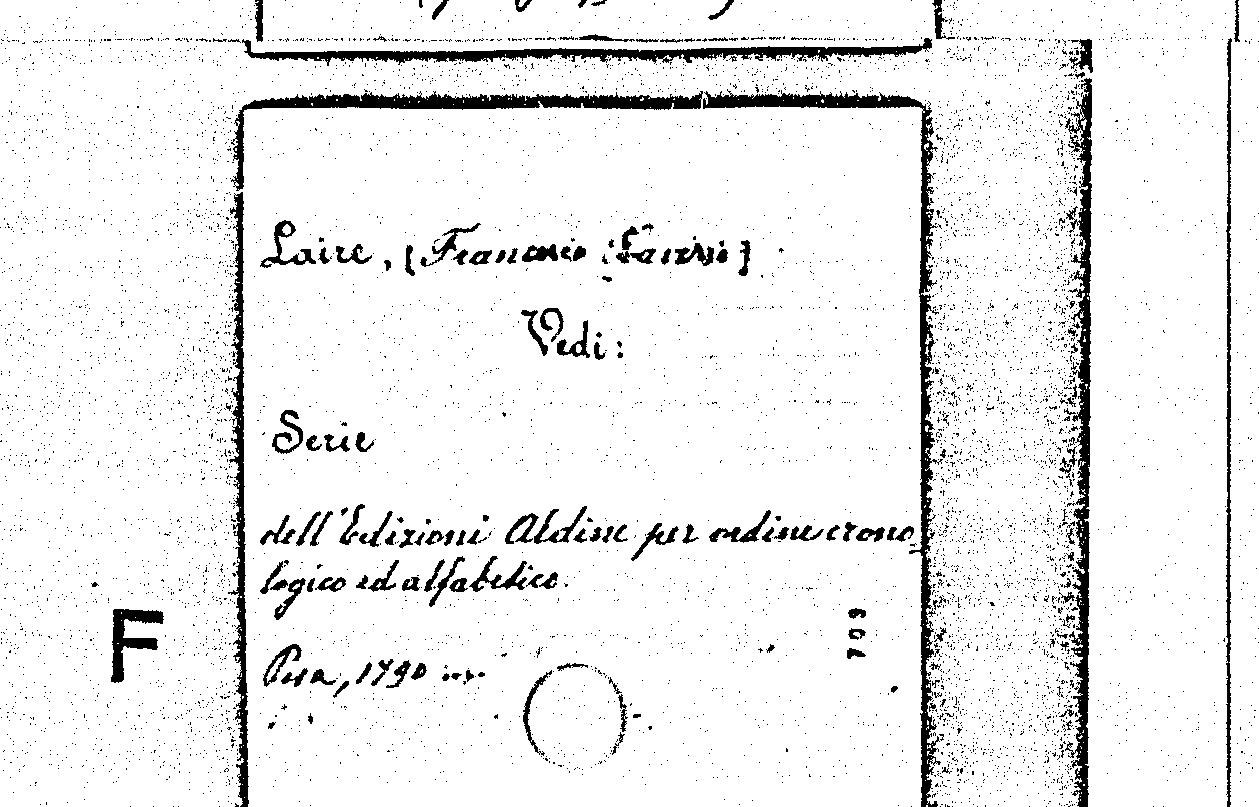 Laire, [Francesco Saverio]
Vedi:
Serie
dell'Edizioni Aldine per ordine crono
logico ed alfabetico.
Pisa, 1790
F
799